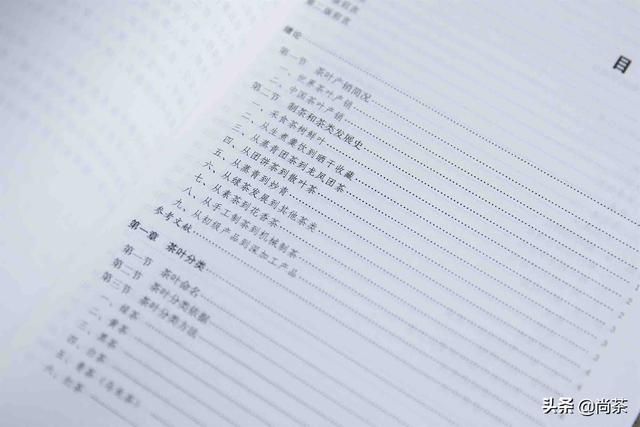 目
第二版前言
绪论
第一节 茶叶产销简况
一、世界茶叶产销
二、中国茶叶产销
第二节 制茶和茶类发展史
一、采食茶树鲜叶
二、从生煮羹饮到晒干收藏
三、从蒸青团茶到龙凤团茶
四、从团饼茶到散叶茶
五、从蒸青到炒青
六、从绿茶发展到其他茶类
七、从素茶到花香茶
八、从手工制茶到机械制茶
九、从初级产品到深加工产品
参考文献
第一章 茶叶分类
第一节 茶叶命名
第二节 茶叶分类依据
第三节 茶叶分类方法
一、绿茶
二、黄茶
三、黑茶
四、白茶
五、青茶（乌龙茶）
六、红茶
头条 @尚茶